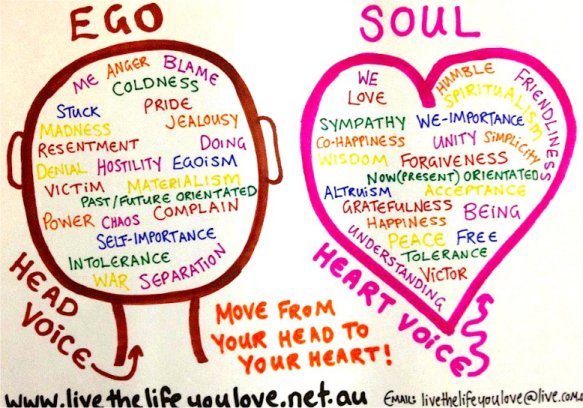 EGO
ME ANGER BLAME
COLDNESS
STUCK PRIDE
MADNESS JEALOUSY
RESENTMENT DOING
DENIAL HOSTILITY EGOISM
VICTIM MATERIALISM
PAST/FUTURE ORIENTATED
POWER CHAOS COMPLAIN
SELF-IMPORTANCE
INTOLERANCE
WAR SEPARATION
HEAD
VOICE
SOUL
WE HUMBLE FRIENDLINESS
LOVE SPIRITUALISM
SYMPATHY WE-IMPORTANCE
CO-HAPPINESS UNITY SIMPLICITY
WISDOM FORGIVENESS
NOW(PRESENT) ORIENTATED
ALTRUISM ACCEPTANCE
GRATEFULNESS BEING
HAPPINESS
PEACE FREE
UNDERSTANDING TOLERANCE
VICTOR
HEART VOICE
MOVE FROM
YOUR HEAD TO
YOUR HEART!
www.livethelifeyoulove.net.au
EMAIL: livethelifeyoulove@live.com.